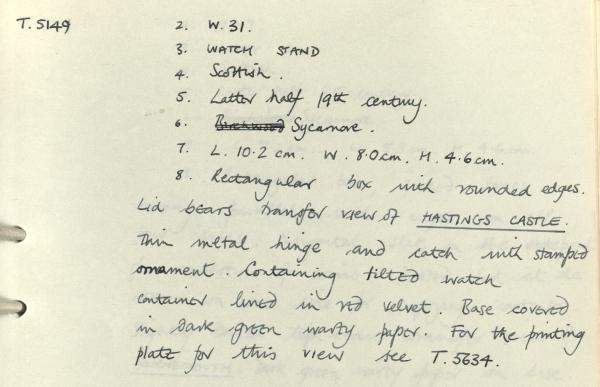 T.5149
2. W.31.
3. WATCH STAND
4. Scottish.
5. Latter half 19th century.
6. Birchwood Sycamore.
7. L. 10.2 cm. W. 8.0 cm. H. 4.6 cm.
8. Rectangular box with rounded edges.
Lid bears transfer view of HASTINGS CASTLE.
Thin metal hinge and catch with stamped
ornament. Containing tilted watch
container lined in red velvet. Base covered
in dark green warty paper. For the printing
plate for this view see T.5634.